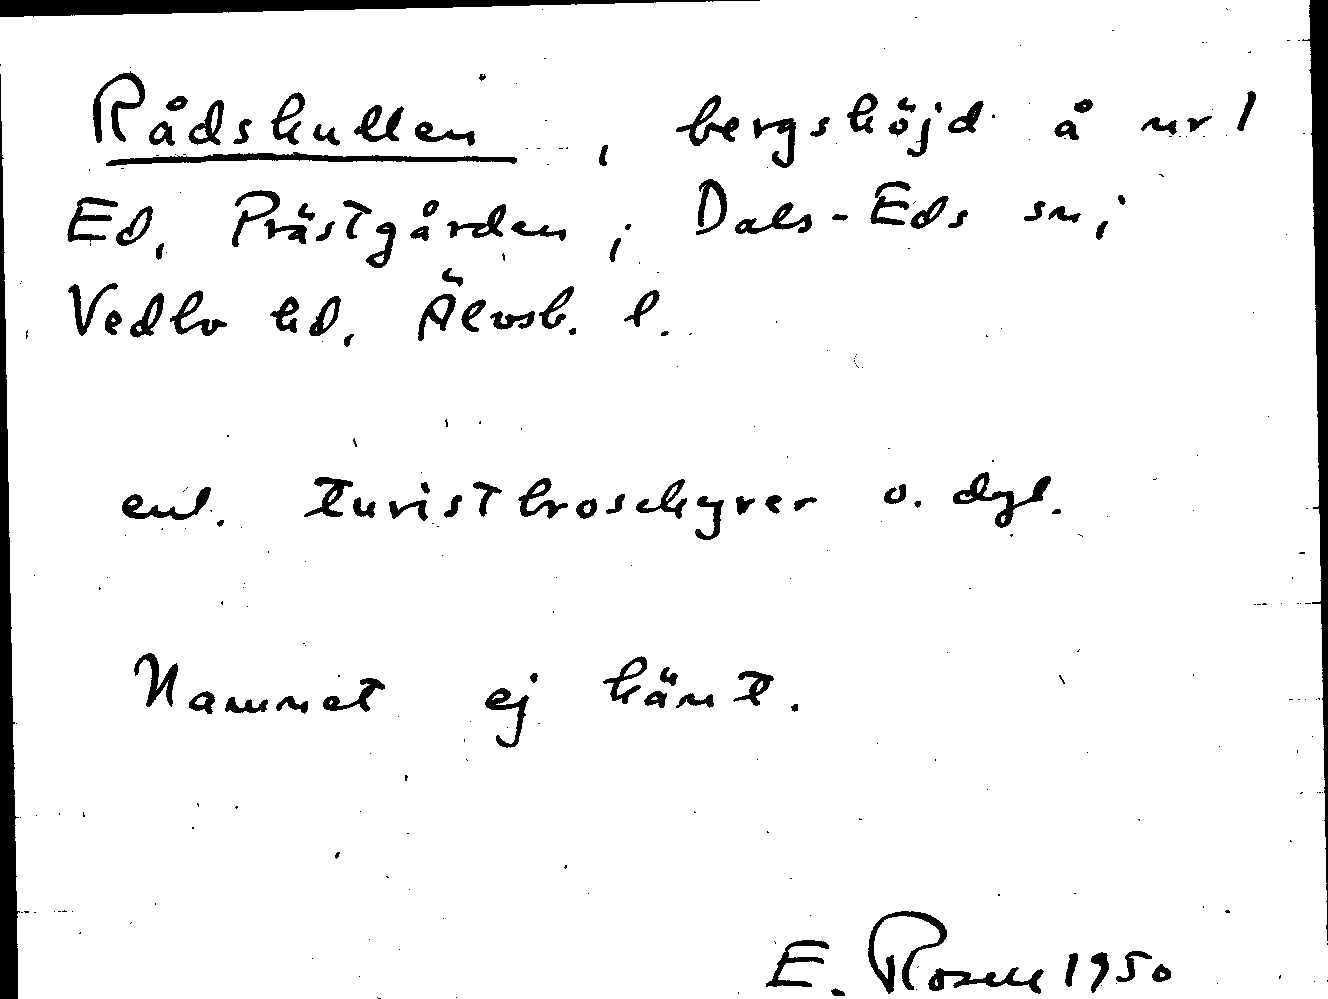 Rådskullen, bergshöjd å nr 1
Ed, Prästgården, Dals-Eds sn,
Vedbo hd, Älvsb. l.
enl. turistbroschyrer o. dyl.
Namnet ej känt.
E. Rosell 1950